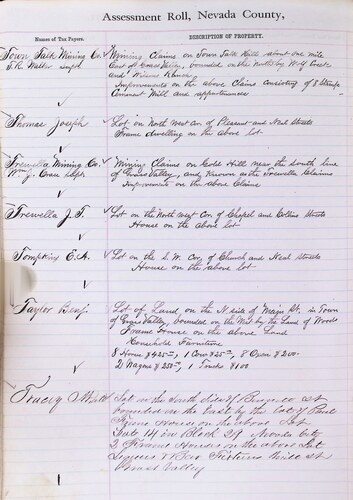 Assessment Roll, Nevada County,
Names of Tax Payers. DESCRIPTION OF PROPERTY.
Town Talk Mining Co. Mining Claims on Town Talk Hill about one mile
East of Grass Valley, bounded on the North by Wolf Creek
and Wilson Ranch
Improvements on the above Claims consisting of 8 Stamp
Cement Mill and appurtenances
Thomas Joseph Lot on North West Cor of Pleasant and Neal Streets
Frame dwelling on the above lot
Trewella Mining Co. Mining Claims on Gold Hill near the South line
Wm J. Supt of Grass Valley, and Known as the Trewella Claims
Improvements on the above Claims
Trewella J. T. Lot on the North West Cor of Chapel and Collins Streets
House on the above lot
Tompkins E. A. Lot on the S. W. Cor of Church and Neal Streets
House on the above lot
Taylor Benj. Lot of Land, on the N. side of Main St. in Town
of Grass Valley, bounded on the West by the Land of Woods
Frame House on the above Land
Household Furniture
8 Horse $425, 1 Cow $25, 8 Oxen $200
2 Wagons $250, 1 $100
Tracey Lot on the South side of St
bounded on the East by the lot of
Frame House on the above Lot
Lots 14 in Block 29
2 Frame Houses on the above Lot
Liquors & Bar Fixtures Mill St
Grass Valley